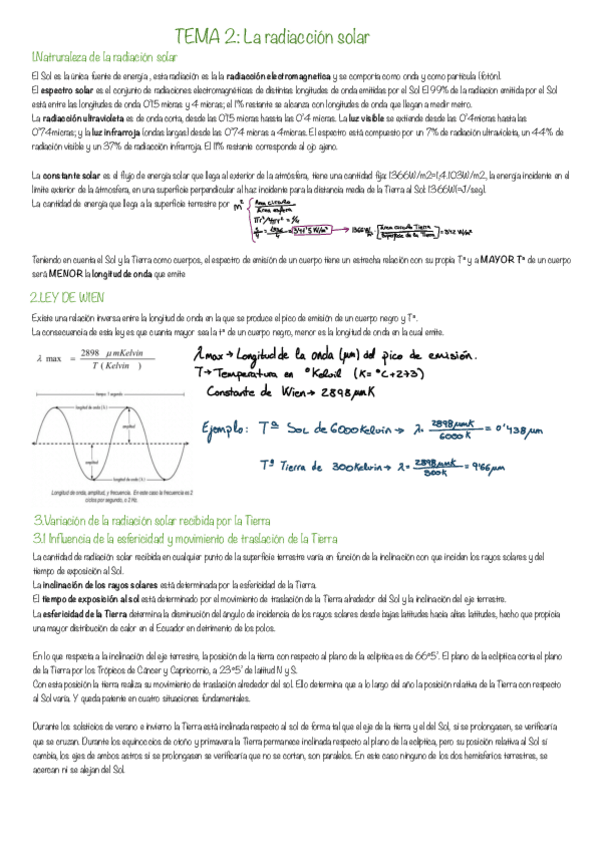 TEMA 2: La radiacción solar
1.Natruraleza de la radiación solar
El Sol es la única fuente de energía , esta radiación es la la radiacción electromagnetica y se comporta como onda y como partícula (fotón).
El espectro solar es el conjunto de radiaciones electromagnéticas de distintas longitudes de onda emitidas por el Sol El 99% de la radiacion emitida por el Sol
está entre las longitudes de onda 0'15 micras y 4 micras; el 1% restante se alcanza con longitudes de onda que llegan a medir metro.
La radiacción ultravioleta es de onda corta, desde las 0'15 micras hassta las 0'4 micras. La luz visible se extiende desde las 0'4micras hasta las
0'74micras; y la luz infrarroja (ondas largas) desde las 0'74 micras a 4micras. El espectro está compuesto por un 7% de radiación ultravioleta, un 44% de
radiación visible y un 37% de radiacción infrarroja. El 11% restante corresponde al ojo ajeno.
La constante solar es el flujo de energía solar que llega al exterior de la atmósfera, tiene una cantidad fija: 1366W/m2=1,4.103W/m2, la energía incidente en el
límite exterior de la atmósfera, en una superficie perpendicular al haz incidente para la distancia media de la Tierra al Sol: 1366W(=J/seg).
La cantidad de energía que llega a la superficie terrestre por m²
Área círculo
Área esfera
πr²/4πr² = 1/4
= 341'5 W/m² → 1366 W/m² · [Área círculo Tierra / Superficie de la Tierra] = 342 W/m²
Teniendo en cuenta el Sol y la Tierra como cuerpos, el espectro de emisión de un cuerpo tiene un estrecha relación con su propia Tª y a MAYOR Tª de un cuerpo
será MENOR la longitud de onda que emite
2.LEY DE WIEN
Existe una relación inversa entre la longitud de onda en la que se produce el pico de emisión de un cuerpo negro y Tª.
La consecuencia de esta ley es que cuanta mayor sea la tª de un cuerpo negro, menor es la longitud de onda en la cual emite.
λ max = 2898 μ mKelvin / T ( Kelvin )
λmax → Longitud de la onda (μm) del pico de emisión.
T → Temperatura en °Kelvil (K= °C+273)
Constante de Wien → 2898 μmK
tiempo: 1 segundo
longitud de onda (λ)
amplitud
amplitud
longitud de onda (λ)
Longitud de onda, amplitud, y frecuencia. En este caso la frecuencia es 2
ciclos por segundo, o 2 Hz.
Ejemplo: Tª Sol de 6000Kelvin → λ= 2898μmK / 6000K = 0'438μm
Tª Tierra de 300Kelvin → λ= 2898μmK / 300K = 9'66μm
3.Variación de la radiación solar recibida por la Tierra
3.1 Influencia de la esfericidad y movimiento de traslación de la Tierra
La cantidad de radiación solar recibida en cualquier punto de la superficie terrestre varía en función de la inclinación con que inciden los rayos solares y del
tiempo de exposición al Sol.
La inclinación de los rayos solares está determinada por la esfericidad de la Tierra.
El tiempo de exposición al sol está determinado por el movimiento de traslación de la Tierra alrededor del Sol y la inclinación del eje terrestre.
La esfericidad de la Tierra determina la disminución del ángulo de incidencia de los rayos solares desde bajas latitudes hacia altas latitudes, hecho que propicia
una mayor distribución de calor en el Ecuador en detrimento de los polos.
En lo que respecta a la inclinación del eje terrestre, la posición de la tierra con respecto al plano de la eclíptica es de 66º5'. El plano de la eclíptica corta el plano
de la Tierra por los Trópicos de Cáncer y Capricornio, a 23º5' de latitud N y S.
Con esta posición la tierra realiza su movimiento de traslación alrededor del sol. Ello determina que a lo largo del año la posición relativa de la Tierra con respecto
al Sol varía. Y queda patente en cuatro situaciones fundamentales.
Durante los solsticios de verano e invierno la Tierra está inclinada respecto al sol de forma tal que el eje de la tierra y el del Sol, si se prolongasen, se verificaría
que se cruzan. Durante los equinoccios de otoño y primavera la Tierra permanece inclinada respecto al plano de la eclíptica, pero su posición relativa al Sol sí
cambia, los ejes de ambos astros si se prolongasen se verificaría que no se cortan, son paralelos. En este caso ninguno de los dos hemisferios terrestres, se
acercan ni se alejan del Sol.